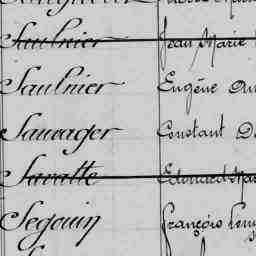 Saulnier Jean Marie
Saulnier Eugène
Sauvager Constant
Savatte Edouard
Segouin François